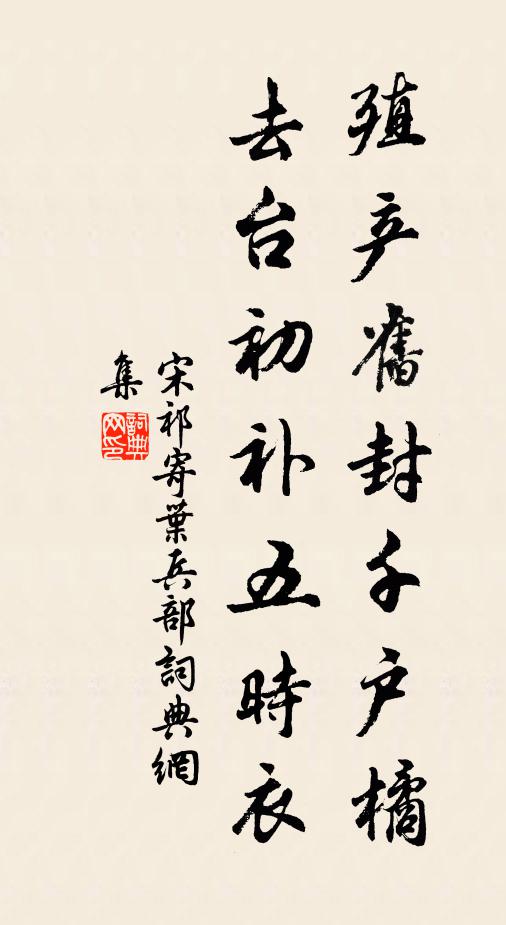 殖产舊封千户橘
去台初补五時衣
宋祁寄葉兵部詞典網
集
詞典
网印